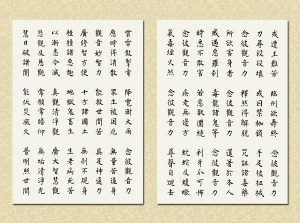 或遭王難苦 臨刑欲壽終 念彼觀音力
刀尋段段壞 或囚禁枷鎖 手足被杻械
念彼觀音力 釋然得解脫 咒詛諸毒藥
所欲害身者 念彼觀音力 還著於本人
或遇惡羅剎 毒龍諸鬼等 念彼觀音力
時悉不敢害 若惡獸圍繞 利牙爪可怖
念彼觀音力 疾走無邊方 蚖蛇及蝮蠍
氣毒煙火然 念彼觀音力 尋聲自迴去
雲雷鼓掣電 降雹澍大雨 念彼觀音力
應時得消散 眾生被困厄 無量苦逼身
觀音妙智力 能救世間苦 具足神通力
廣修智方便 十方諸國土 無剎不現身
種種諸惡趣 地獄鬼畜生 生老病死苦
以漸悉令滅 真觀清淨觀 廣大智慧觀
悲觀及慈觀 常願常瞻仰 無垢清淨光
慧日破諸闇 能伏災風火 普明照世間